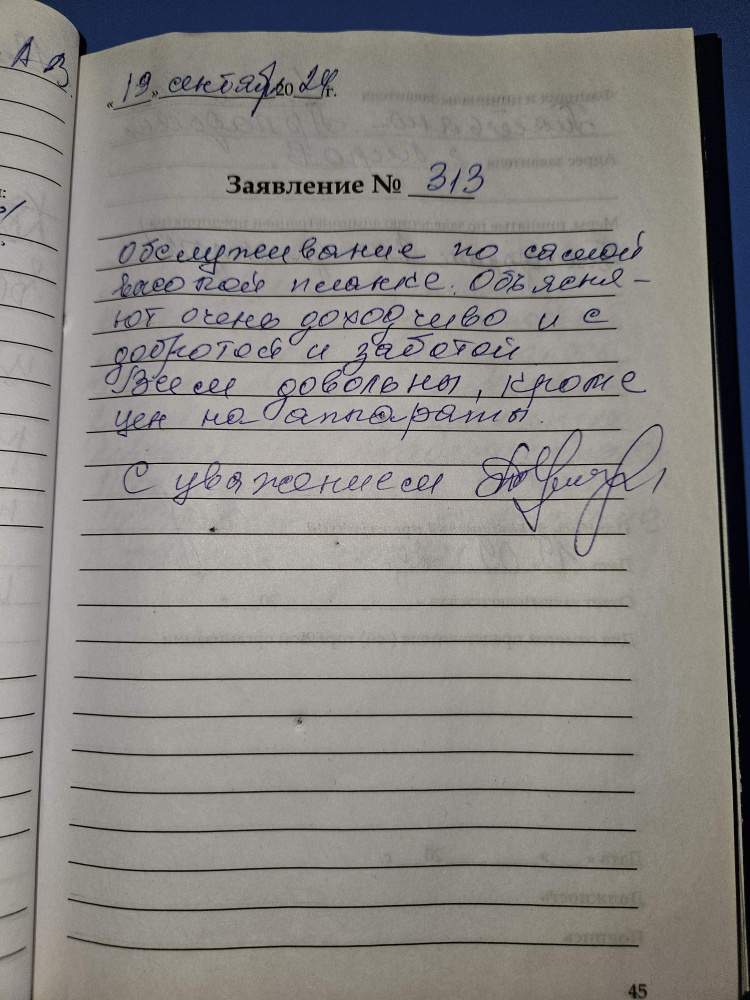 А В.
«19» сентября 2024 г.
Заявление № 313
Обслуживание по самой
высокой планке. Объясня-
ют очень доходчиво и с
добротой и заботой
Всем довольны, кроме
цен на аппараты.
С уважением
45